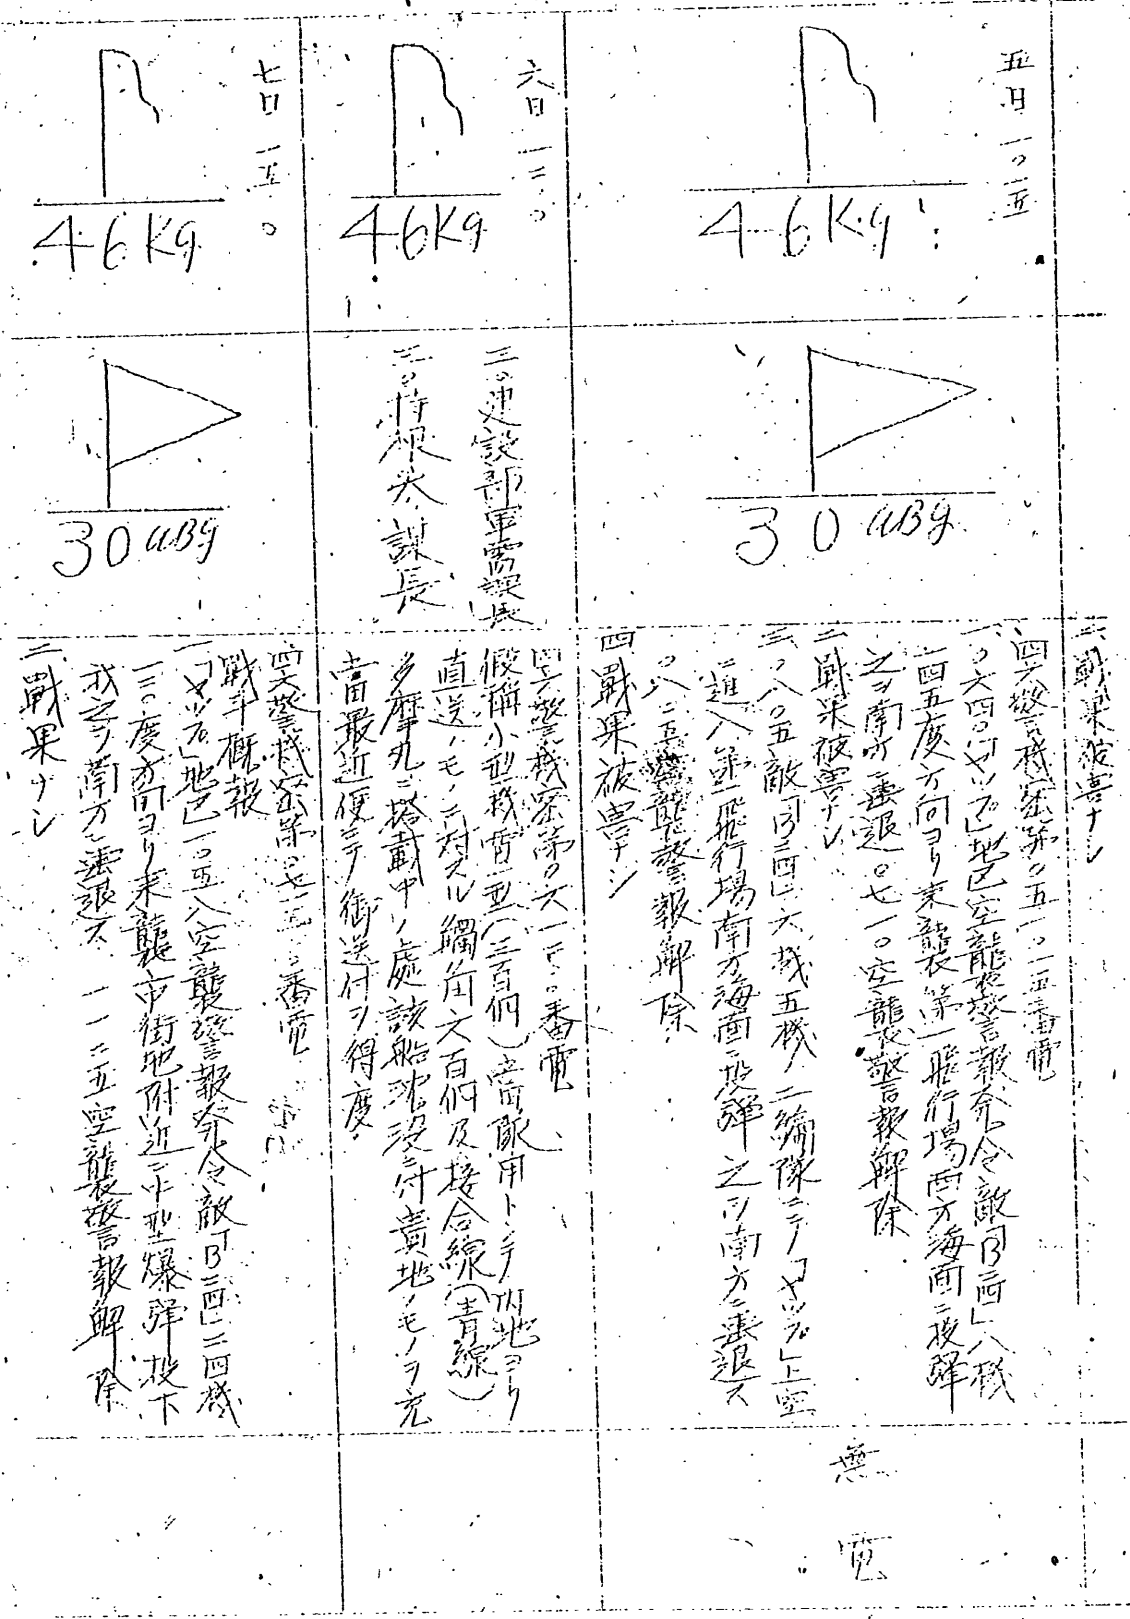 二、戰果被害ナシ
五日一〇一五
46Kg
30aBg
四六警機密第〇五一〇一五番電
一、〇六四〇「ヤップ」地區空襲警報發令敵「B二四」八機
一四五度方向ヨリ来襲第一飛行場西方海面ニ投彈
之ヲ南方ニ撃退〇七一〇空襲警報解除
二、戰果被害ナシ
三、〇八〇五敵「B二四」六機五機ノ二編隊ニテ「ヤップ」上空
ニ進入第一飛行場南方海面ニ投彈之ヲ南方ニ撃退ス
〇八二五空襲警報解除
四、戰果被害ナシ
無電
六日一二〇
46Kg
三〇建設部軍需課長
三〇特根参謀長
四六警機密第〇六一二〇番電
假稱小型機雷一型(三百個)當隊用トシテ内地ヨリ
直送ノモノニ対スル觸角六百個及接合線(青線)
多摩丸ニ搭載中ノ處該船沈没ニ付貴地ノモノヲ充
當最近便ニテ御送付ヲ得度
七日一五〇
46Kg
30aBg
四六警機密第〇七一五〇番電
戰斗概報
一、「ヤップ」地區一〇五八空襲警報発令敵「B二四」二四機
一三〇度方向ヨリ来襲市街地附近ニ中型爆弾投下
我之ヲ南方ニ撃退ス 一一二五空襲警報解除
二、戰果ナシ